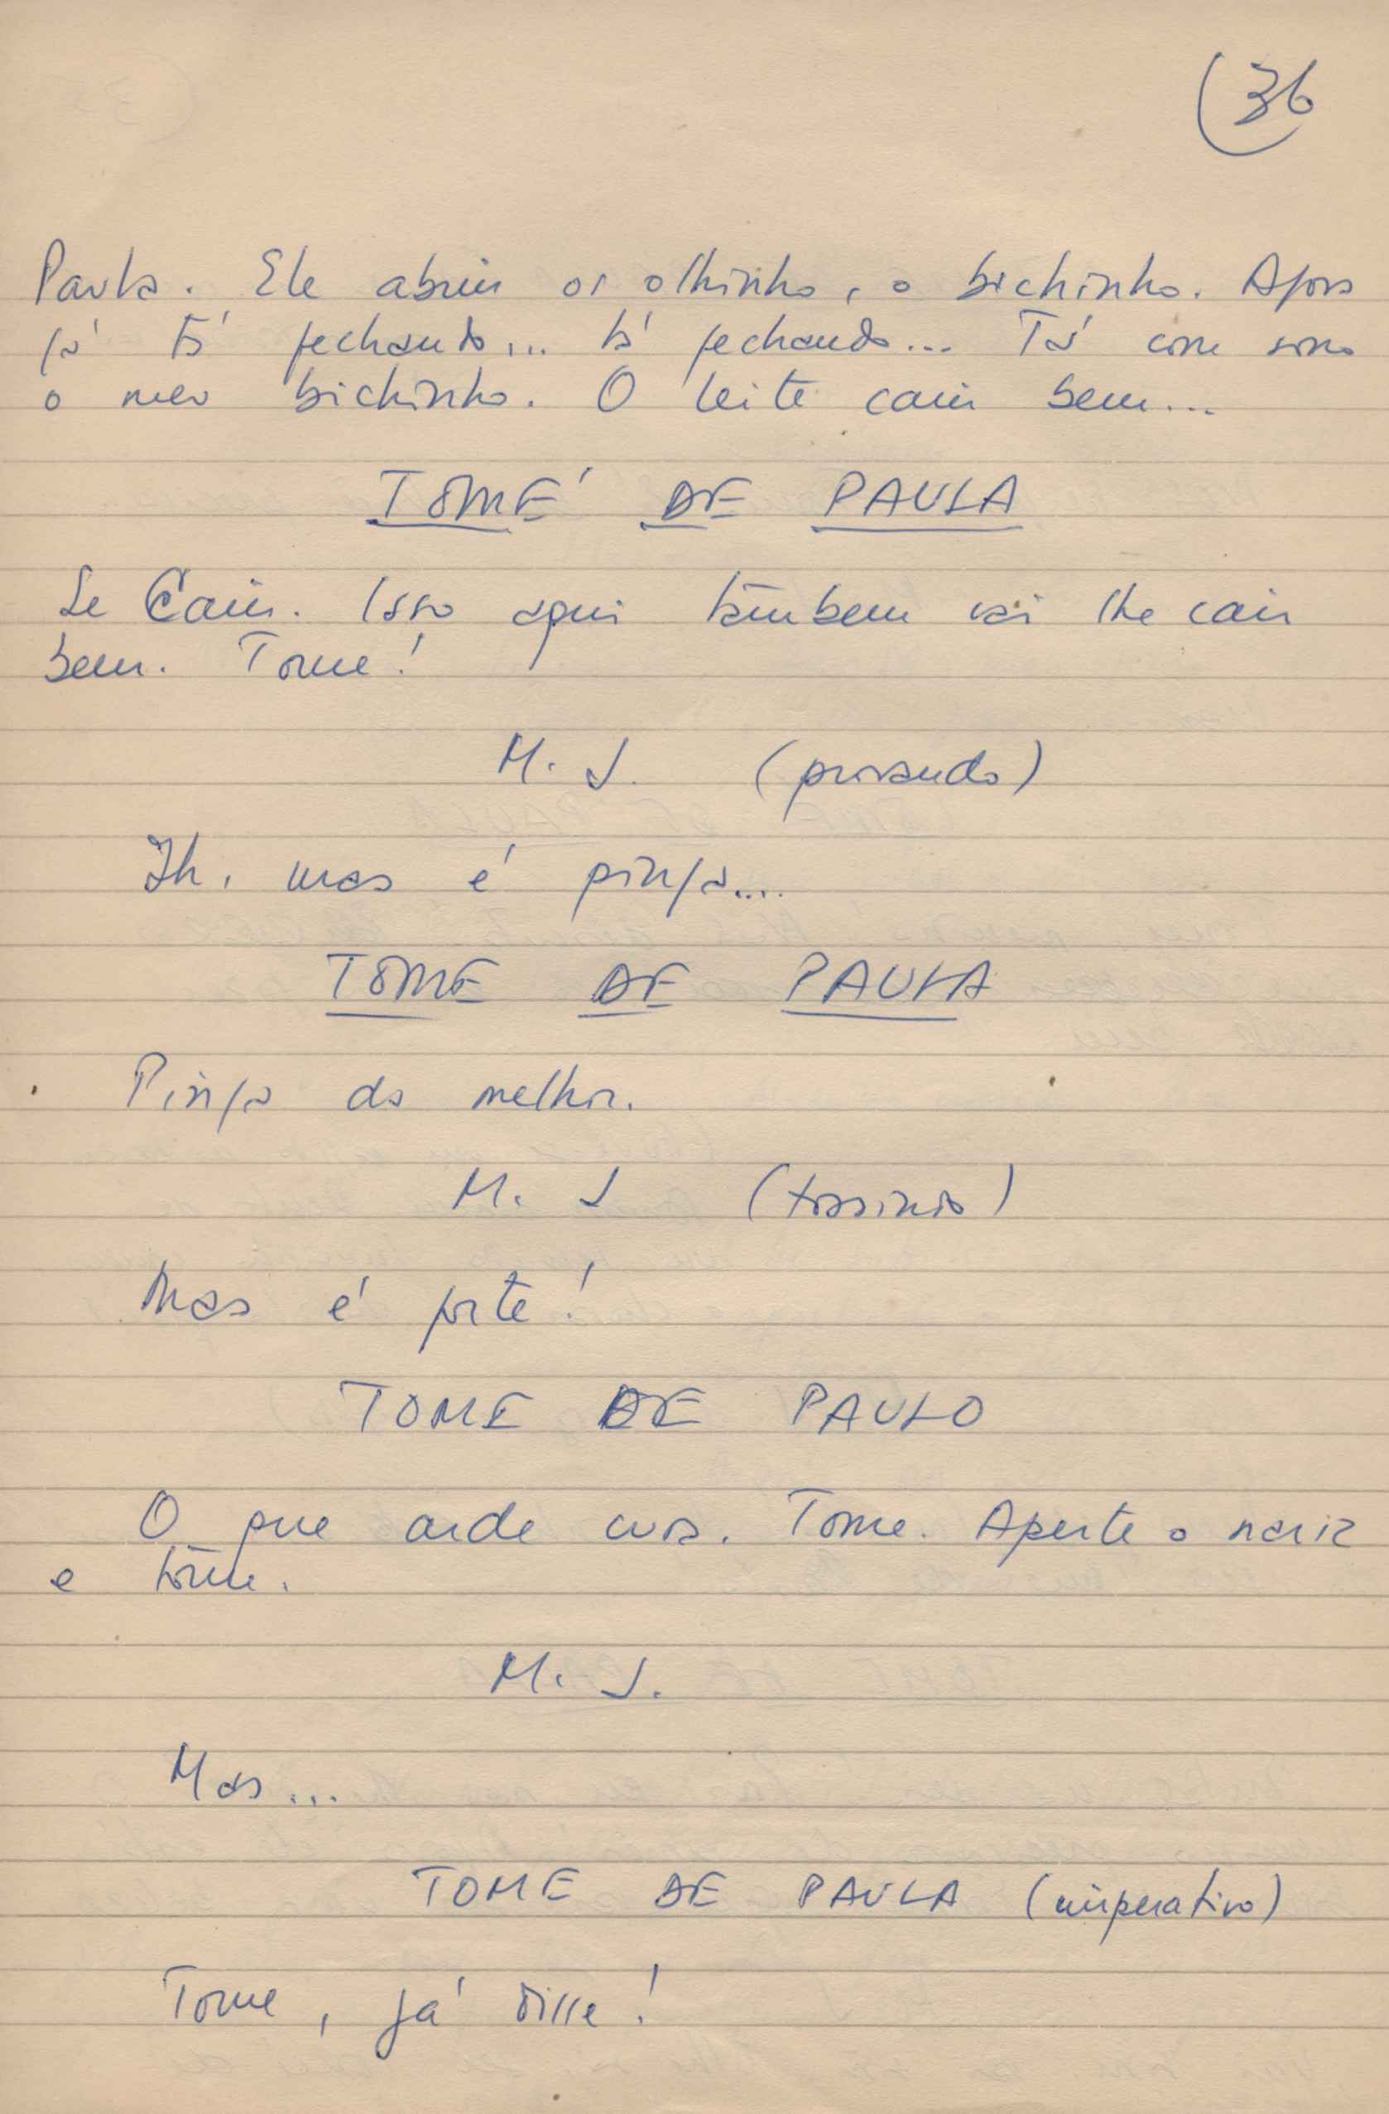 36
Paula. Ele abriu os olhinho, o bichinho. Agora
já tá fechando... tá fechando... Tá com sono
o meu bichinho. O leite caiu bem...
TOMÉ DE PAULA
Se Caiu. Isso aqui tambem vai lhe cair
bem. Tome!
M. J. (provando)
Ih, mas é pinga....
TOME DE PAULA
Pinga da melhor.
M. J (tossindo)
Mas é forte!
TOME DE PAULO
O que arde cura. Tome. Aperte o nariz
e tome.
M. J.
Mas...
TOME DE PAULA (imperativo)
Tome, já disse!